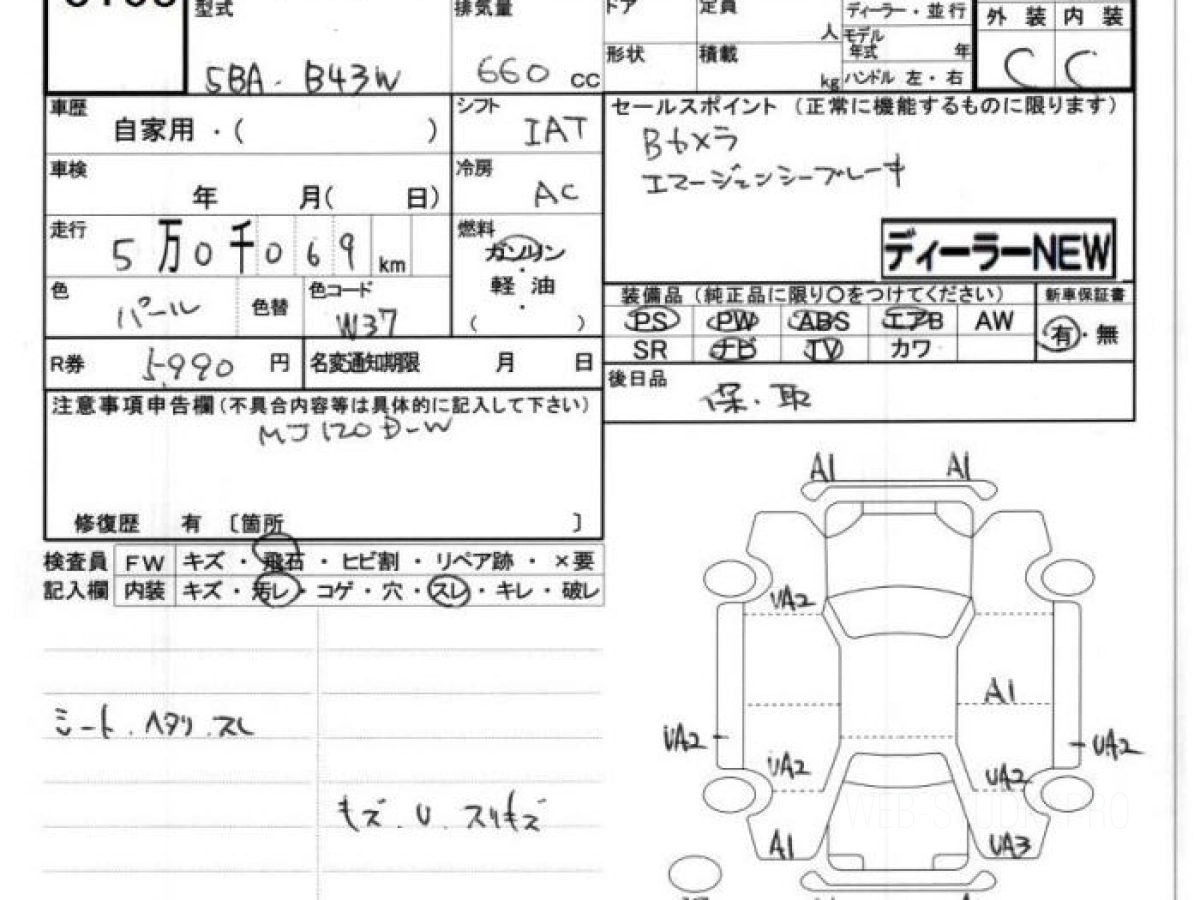 型式 排気量 ドア 定員 ディーラー・並行 外装 内装
人 モデル年式 年
形状 積載
5BA - B43W 660 cc kg ハンドル 左・右 C C
車歴 シフト セールスポイント (正常に機能するものに限ります)
自家用・( ) IAT Bカメラ
車検 冷房 エマージェンシーブレーキ
年 月( 日) AC
走行 燃料
5万0千069 km ガソリン ディーラーNEW
・
軽油
色 色替 色コード 装備品(純正品に限り○をつけてください) 新車保証書
パール W37 ( ) PS PW ABS エアB AW 有・無
R券 5,990 円 名変通知期限 月 日 SR ナビ TV カワ
後日品
保・取
注意事項申告欄(不具合内容等は具体的に記入して下さい)
MJ120D-W
修復歴 有 〔箇所 〕
検査員 FW キズ・飛石・ヒビ割・リペア跡・×要
記入欄 内装 キズ・汚レ・コゲ・穴・スレ・キレ・破レ
A1 A1
UA2
A1
シート.ヘタリ.スレ
UA2 UA2
UA2 UA2
キズ.U.スリキズ
A1 UA3
WEB-STUDIO PRO